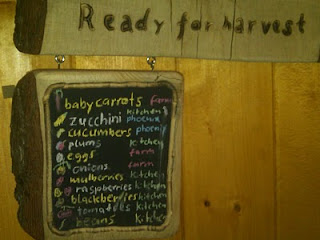 Ready for harvest
baby carrots farm
zucchini kitchen &
phoenix
cucumbers phoenix
plums kitchen
eggs farm
onions farm
mulberries kitchen
raspberries kitchen
blackberries kitchen
tomatoes kitchen
beans kitchen